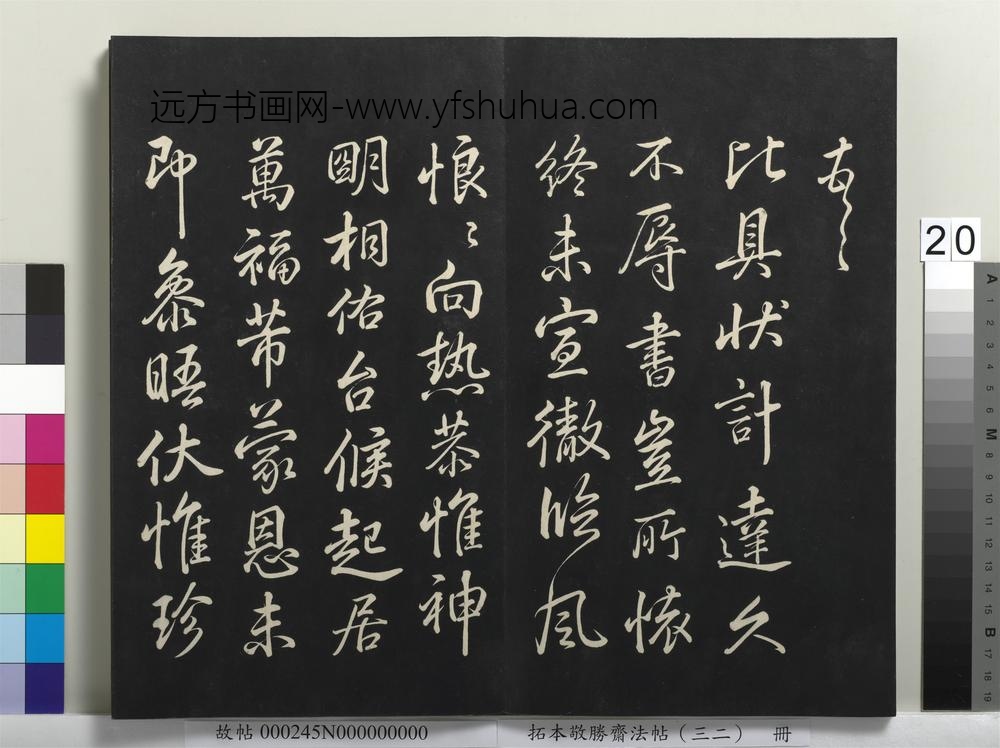 远方书画网-www.yfshuhua.com
比具狀計達久
不辱書豈所懷
終未宣徹臨風
悢〻向熱恭惟神
明相佑台候起居
萬福芾蒙恩未
即參晤伏惟珍
20
A 1 2 3 4 5 6 M 8 9 10 11 12 13 14 15 B 17 18 19
故帖 000245N000000000
拓本敬勝齋法帖（三二） 冊